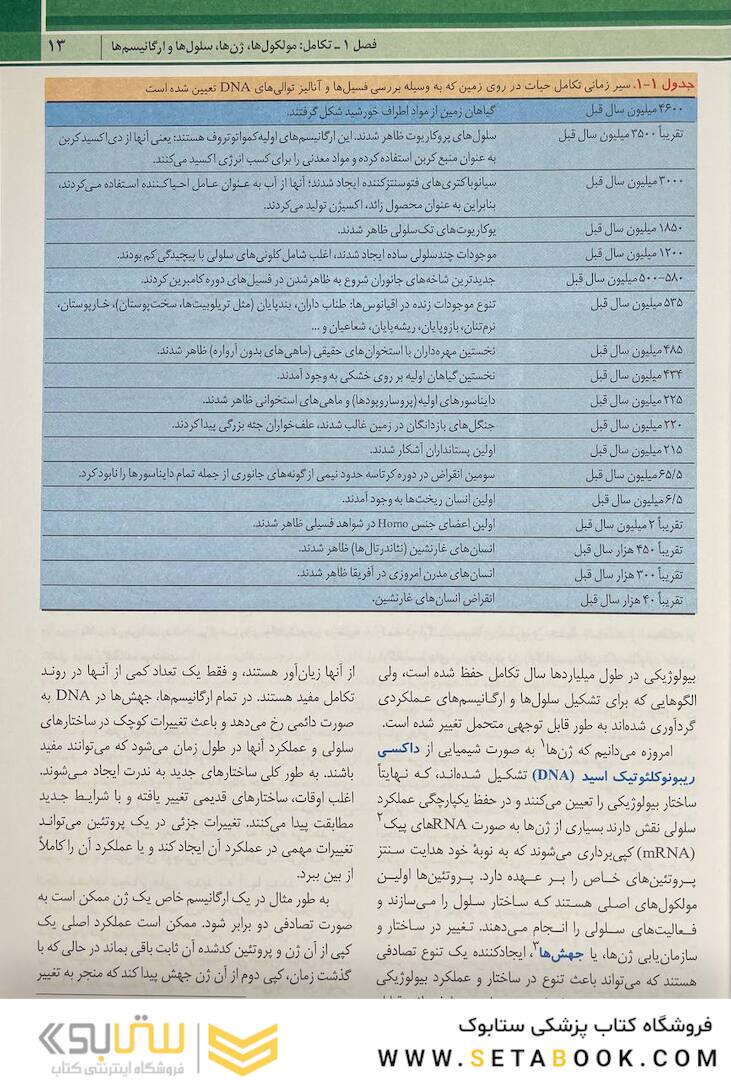 فصل ۱ ـ تکامل: مولکول‌ها، ژن‌ها، سلول‌ها و ارگانیسم‌ها
۱۳
جدول ۱-۱. سیر زمانی تکامل حیات در روی زمین که به وسیله بررسی فسیل‌ها و آنالیز توالی‌های DNA تعیین شده است
۴۶۰۰ میلیون سال قبل گیاهان زمین از مواد اطراف خورشید شکل گرفتند.
تقریباً ۳۵۰۰ میلیون سال قبل سلول‌های پروکاریوت ظاهر شدند. این ارگانیسم‌های اولیه کمواتوتروف هستند: یعنی آنها از دی‌اکسید کربن
به عنوان منبع کربن استفاده کرده و مواد معدنی را برای کسب انرژی اکسید می‌کنند.
۳۰۰۰ میلیون سال قبل سیانوباکتری‌های فتوسنتزکننده ایجاد شدند؛ آنها از آب به عنوان عامل احیاکننده استفاده می‌کردند،
بنابراین به عنوان محصول زائد، اکسیژن تولید می‌کردند.
۱۸۵۰ میلیون سال قبل یوکاریوت‌های تک‌سلولی ظاهر شدند.
۱۲۰۰ میلیون سال قبل موجودات چندسلولی ساده ایجاد شدند، اغلب شامل کلونی‌های سلولی با پیچیدگی کم بودند.
۵۸۰-۵۰۰ میلیون سال قبل جدیدترین شاخه‌های جانوران شروع به ظاهرشدن در فسیل‌های دوره کامبرین کردند.
۵۳۵ میلیون سال قبل تنوع موجودات زنده در اقیانوس‌ها: طناب داران، بندپایان (مثل تریلوبیت‌ها، سخت‌پوستان)، خارپوستان،
نرم‌تنان، بازوپایان، ریشه‌پایان، شعاعیان و ...
۴۸۵ میلیون سال قبل نخستین مهره‌داران با استخوان‌های حقیقی (ماهی‌های بدون آرواره) ظاهر شدند.
۴۳۴ میلیون سال قبل نخستین گیاهان اولیه بر روی خشکی به وجود آمدند.
۲۲۵ میلیون سال قبل دایناسورهای اولیه (پروساروپودها) و ماهی‌های استخوانی ظاهر شدند.
۲۲۰ میلیون سال قبل جنگل‌های بازدانگان در زمین غالب شدند، علف‌خواران جثه بزرگی پیدا کردند.
۲۱۵ میلیون سال قبل اولین پستانداران آشکار شدند.
۶۵/۵ میلیون سال قبل سومین انقراض در دوره کرتاسه حدود نیمی از گونه‌های جانوری از جمله تمام دایناسورها را نابود کرد.
۶/۵ میلیون سال قبل اولین انسان ریخت‌ها به وجود آمدند.
تقریباً ۲ میلیون سال قبل اولین اعضای جنس Homo در شواهد فسیلی ظاهر شدند.
تقریباً ۴۵۰ هزار سال قبل انسان‌های غارنشین (نئاندرتال‌ها) ظاهر شدند.
تقریباً ۳۰۰ هزار سال قبل انسان‌های مدرن امروزی در آفریقا ظاهر شدند.
تقریباً ۴۰ هزار سال قبل انقراض انسان‌های غارنشین.
بیولوژیکی در طول میلیاردها سال تکامل حفظ شده است، ولی
الگوهایی که برای تشکیل سلول‌ها و ارگانیسم‌های عملکردی
گردآوری شده‌اند به طور قابل توجهی متحمل تغییر شده است.
امروزه می‌دانیم که ژن‌ها۱ به صورت شیمیایی از داکسی
ریبونوکلئوتیک اسید (DNA) تشکیل شده‌اند، که نهایتاً
ساختار بیولوژیکی را تعیین می‌کنند و در حفظ یکپارچگی عملکرد
سلولی نقش دارند بسیاری از ژن‌ها به صورت RNAهای پیک۲
(mRNA) کپی‌برداری می‌شوند که به نوبهٔ خود هدایت سنتز
پروتئین‌های خاص را بر عهده دارد. پروتئین‌ها اولین
مولکول‌های اصلی هستند که ساختار سلول را می‌سازند و
فعالیت‌های سلولی را انجام می‌دهند. تغییر در ساختار و
سازمان‌یابی ژن‌ها، یا جهش‌ها۳، ایجادکننده یک تنوع تصادفی
هستند که می‌تواند باعث تنوع در ساختار و عملکرد بیولوژیکی
از آنها زیان‌آور هستند، و فقط یک تعداد کمی از آنها در روند
تکامل مفید هستند. در تمام ارگانیسم‌ها، جهش‌ها در DNA به
صورت دائمی رخ می‌دهد و باعث تغییرات کوچک در ساختارهای
سلولی و عملکرد آنها در طول زمان می‌شود که می‌توانند مفید
باشند. به طور کلی ساختارهای جدید به ندرت ایجاد می‌شوند.
اغلب اوقات، ساختارهای قدیمی تغییر یافته و با شرایط جدید
مطابقت پیدا می‌کنند. تغییرات جزئی در یک پروتئین می‌تواند
تغییرات مهمی در عملکرد آن ایجاد کند و یا عملکرد آن را کاملاً
از بین ببرد.
به طور مثال در یک ارگانیسم خاص یک ژن ممکن است به
صورت تصادفی دو برابر شود. ممکن است عملکرد اصلی یک
کپی از آن ژن و پروتئین کدشده آن ثابت باقی بماند در حالی که با
گذشت زمان، کپی دوم از آن ژن جهش پیدا کند که منجر به تغییر
فروشگاه کتاب پزشکی ستابوک
WWW.SETABOOK.COM
ستابوک
فروشگاه اینترنتی کتاب